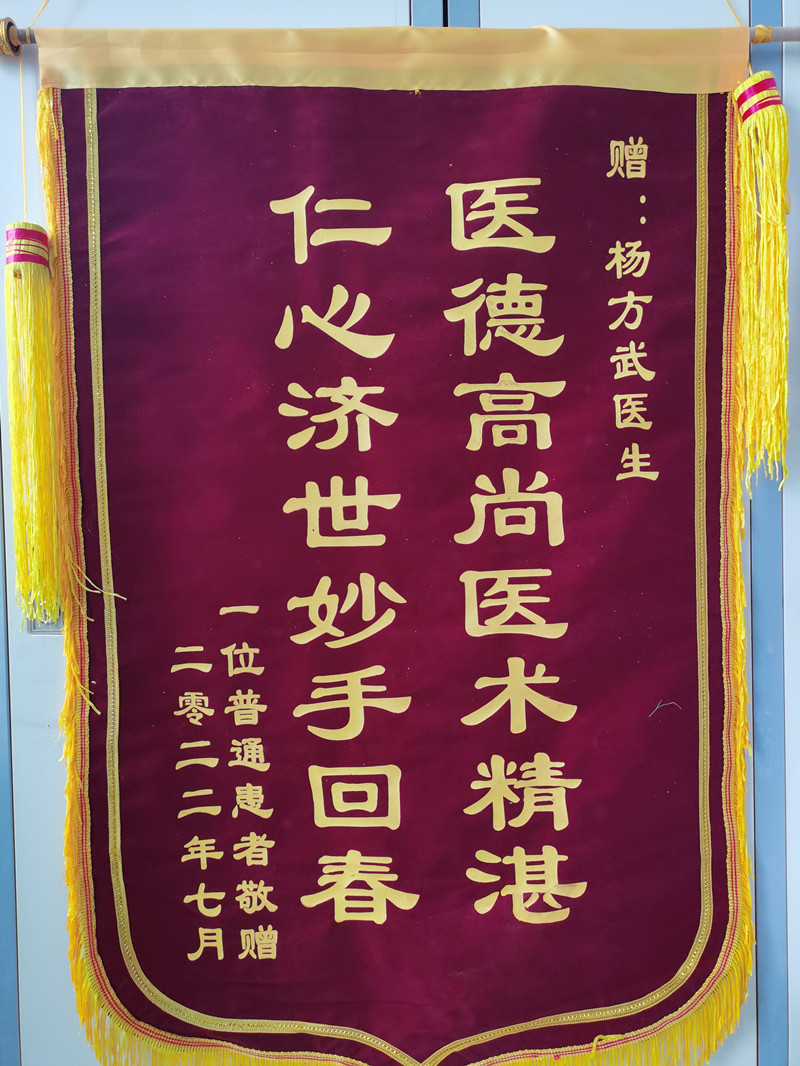 赠：杨方武医生
医德高尚医术精湛
仁心济世妙手回春
一位普通患者敬赠
二零二二年七月